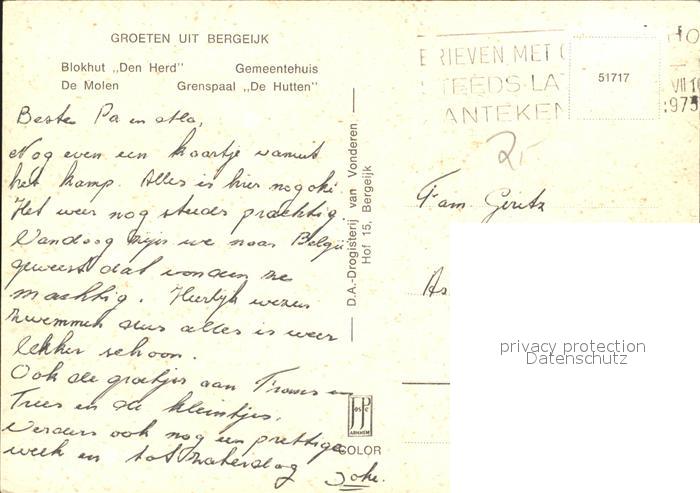 GROETEN UIT BERGEIJK
Blokhut „Den Herd" Gemeentehuis
De Molen Grenspaal „De Hutten"
Beste Pa en Ma,
Nog even een kaartje vanuit
het kamp. Alles is hier nog oké.
Het weer nog steeds prachtig.
Vandaag zijn we naar België
geweest dat vonden ze
machtig. Heerlijk wezen
zwemmen dus alles is weer
lekker schoon.
Ook de groetjes aan Frans en
Trees en de kleintjes.
Verders ook nog een prettige
week en tot zaterdag Joke.
D.A.-Drogisterij van Vonderen
Hof 15, Bergeijk
JosPé
ARNHEM
COLOR
BRIEVEN MET
STEEDS LA
ANTEKEN
51717
VII
1973
2,-
Fam. Geritz
As
privacy protection
Datenschutz